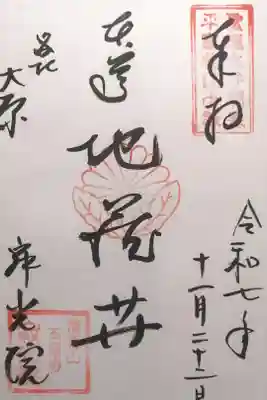 奉拝
令和七年
十一月二十二日
本尊
地蔵𦬇
大原
寂光院